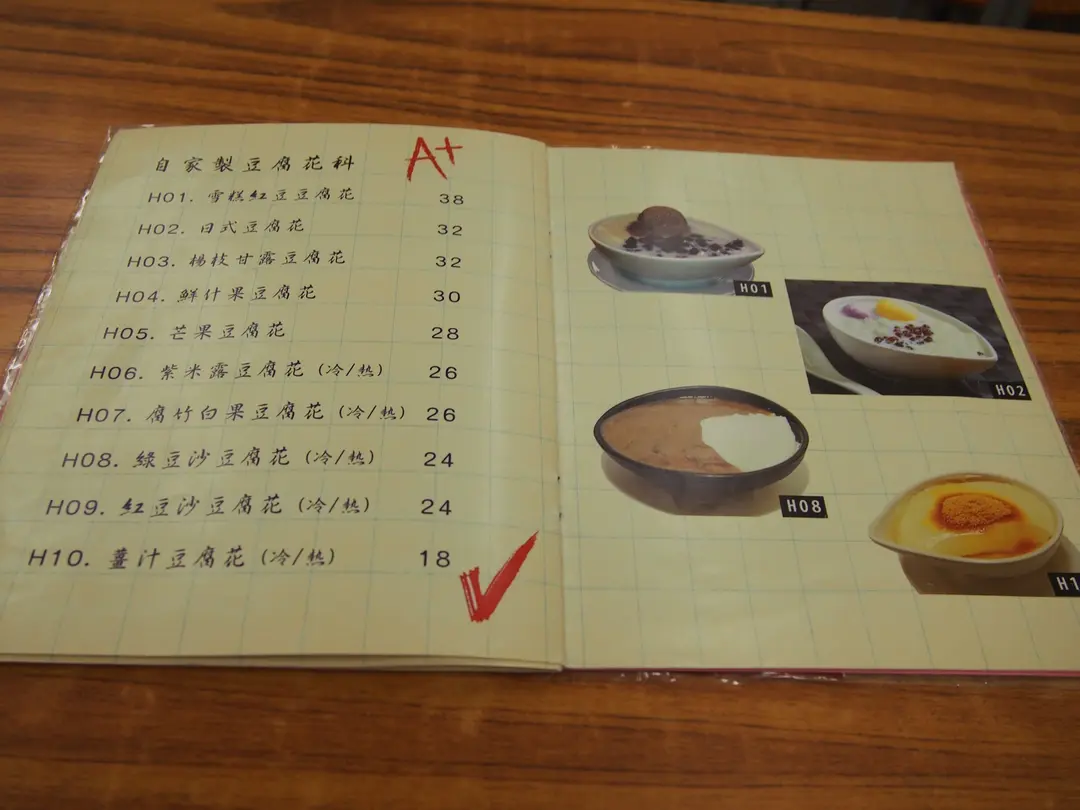 自家製豆腐花科
A+
H01. 雪糕紅豆豆腐花 38
H02. 日式豆腐花 32
H03. 楊枝甘露豆腐花 32
H04. 鮮什果豆腐花 30
H05. 芒果豆腐花 28
H06. 紫米露豆腐花 (冷/熱) 26
H07. 腐竹白果豆腐花 (冷/熱) 26
H08. 綠豆沙豆腐花 (冷/熱) 24
H09. 紅豆沙豆腐花 (冷/熱) 24
H10. 薑汁豆腐花 (冷/熱) 18
H01
H02
H08
H1